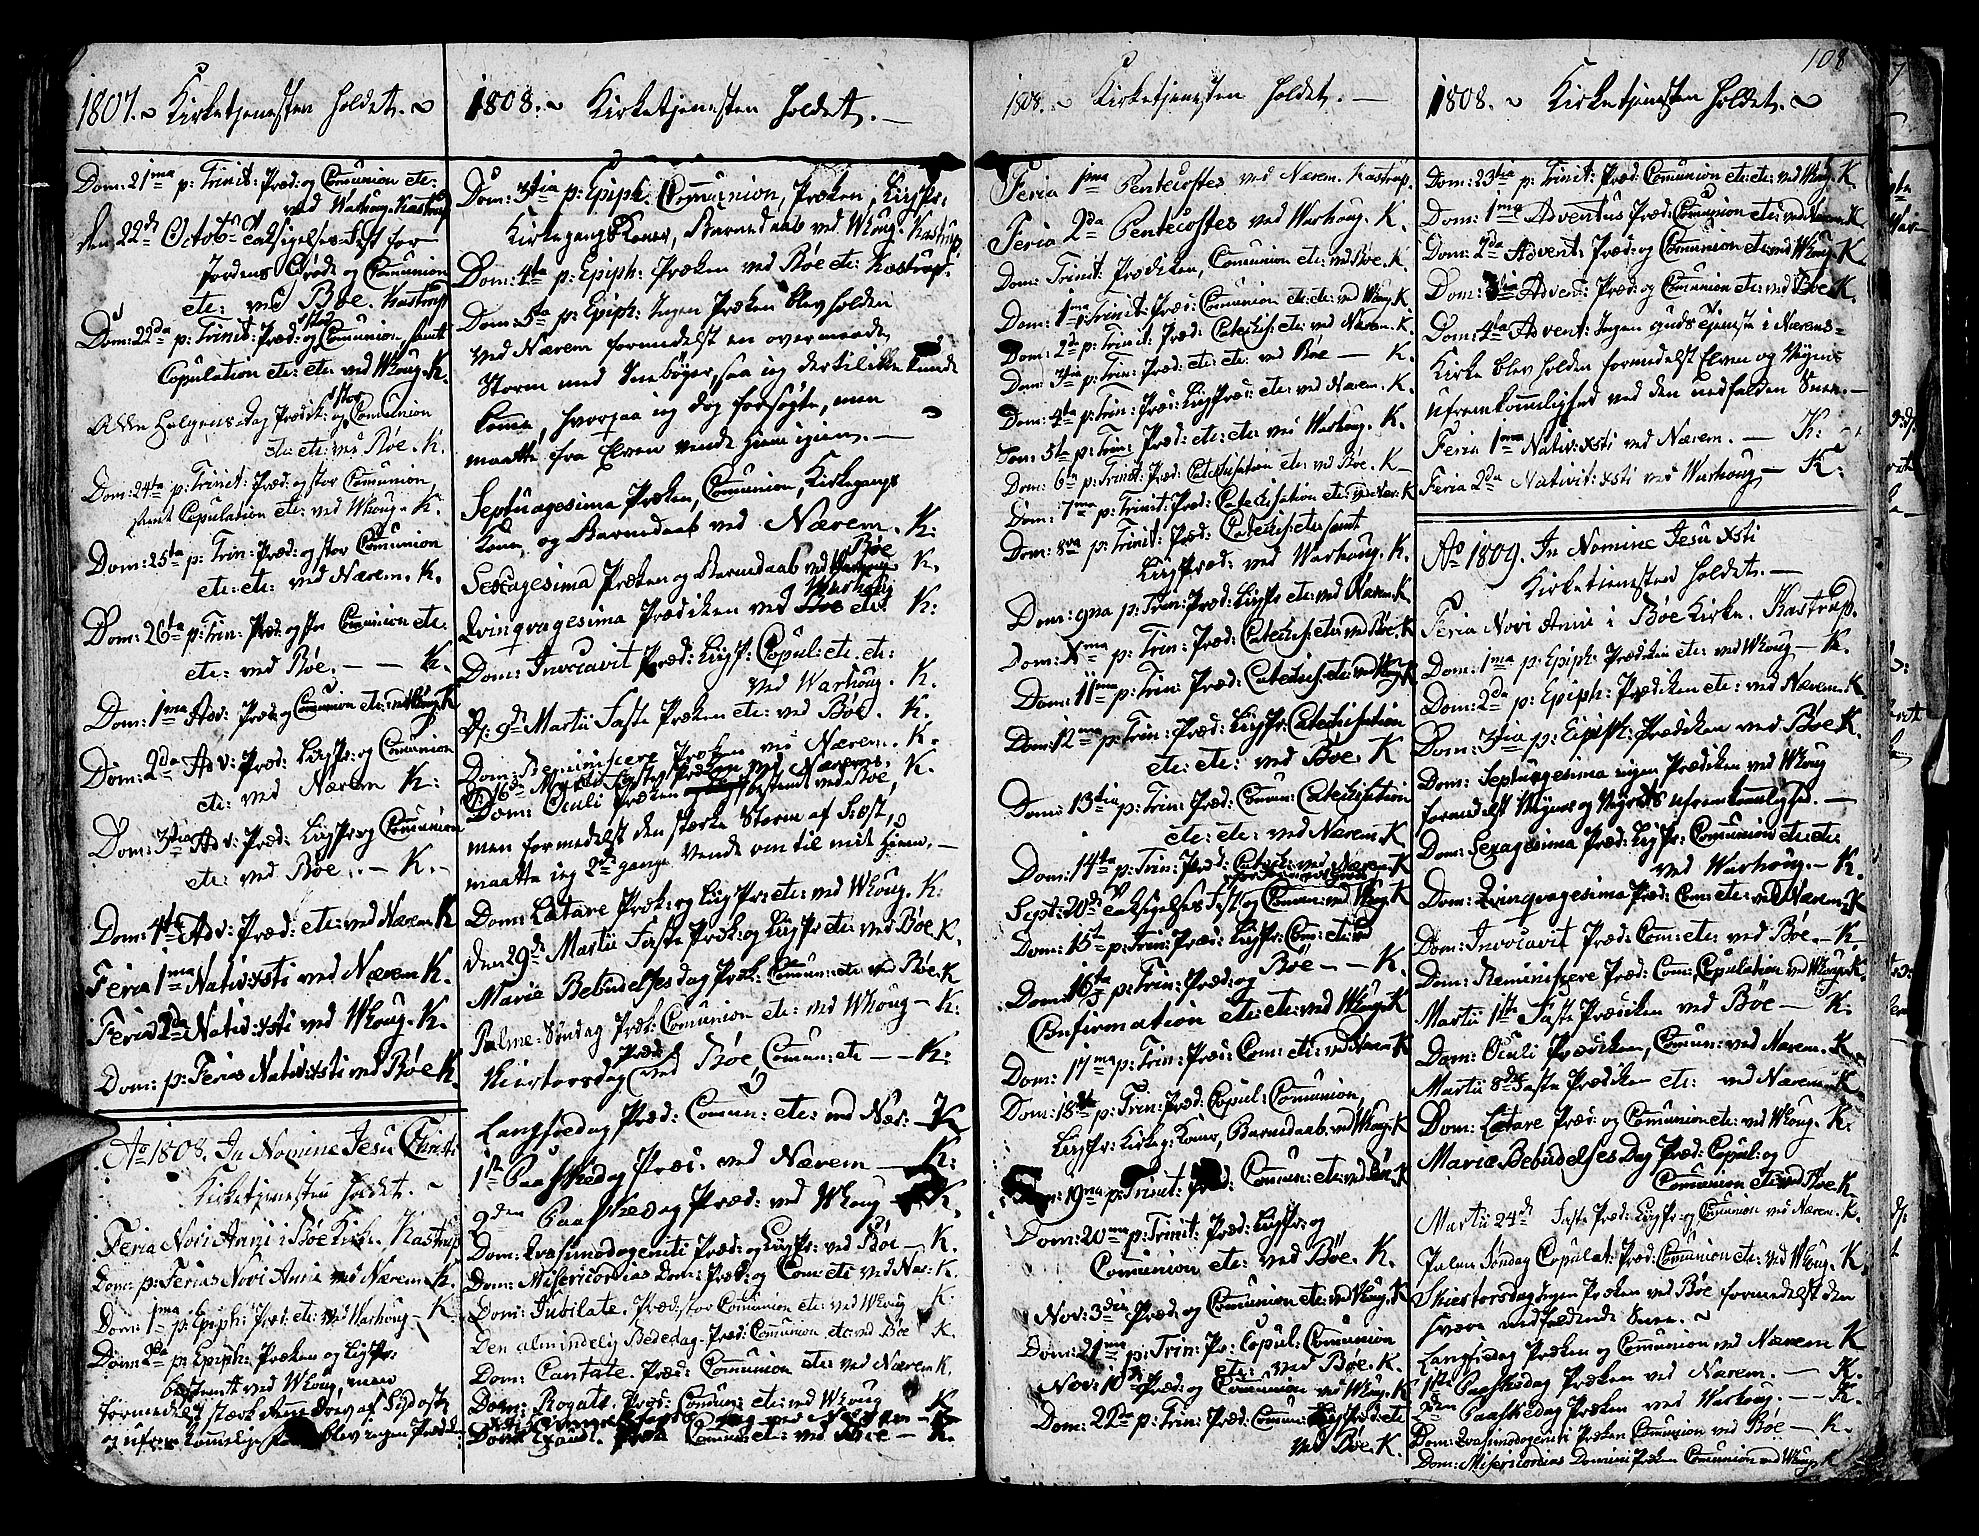 1807. Kirketjenesten holdet.
Dom: 21ma p: Trinit: Præd: og Comunion etc.
ved Warhoug. Kastrup
den 22de Octobr Taksigelses-Fest for
Jordens Grøde og Comunion
etc: ved Bøe. Kastrup
Dom: 22da p: Trinit: Præd: og stor Comunion samt
Copulation etc: etc: ved Whoug. K.
Alle Helgens-dag Prædik: og stor Comunion
etc: etc: ved Bøe. K.
Dom: 24ta p: Trinit: Præd: og stor Comunion,
samt Copulation etc: ved Whoug. K.
Dom: 25ta p: Trin: Præd: og stor Comunion
etc: etc: ved Nærem. K.
Dom: 26ta p: Trin: Præd: og stor Comunion etc.
etc: ved Bøe. — — K.
Dom: 1ma Adv: Præd: og Comunion etc: ved Whoug. K
Dom: 2da Adv: Præd: Ligpr: og Comunion
etc: ved Nærem K:
Dom: 3tia Adv: Præd: Ligpr: og Comunion
etc: ved Bøe. — K. —
Dom: 4ta Adv: Præd: etc: ved Nærem K
Feria 1ma Nativ: xsti ved Nærem K.
Feria 2da Nativ: xsti ved Whoug. K.
Dom: p: Ferias Nativ: xsti ved Bøe K.
Ao 1808. In Nomine Jesu Christi
Kirketjenesten holdet.
Feria Novi Anni i Bøe Kirke. Kastrup
Dom: p: Ferias Novi Anni ved Nærem K.
Dom: 1ma p: Epiph: Præd: etc: ved Warhoug. K
Dom: 2da p: Epiph: Præken og Ligpr:
bestemt ved Whoug, men
formedelst stærk af Sydost
og blev ingen Præd:
1808. Kirketjenesten holdet. —
Dom: 3tia p: Epiph: Comunion, Præken, Ligpr:
Kirkegangs Koner, Barnedaab ved Whoug. Kastrup
Dom: 4ta p: Epiph: Præken ved Bøe etc: Kastrup.
Dom: 5ta p: Epiph: Ingen Præken blev holden
ved Nærem formedelst en overmaade
Storm med Snebøger, saa ieg dertil ikke kunde
kome, hvorpaa ieg dog forsøgte, men
maatte fra Elven vende hiem igien. —
Septuagesima Præken, Comunion, Kirkegangs
Kone, og Barnedaab ved Nærem. K:
Sexagesima Præken og Barnedaab ved Bøe K.
Qvinqvagesima Prædiken ved Warhoug etc: K:
Dom: Invocavit Præd: Ligpr: Copul: etc: etc:
ved Warhoug. K.
D: 9de Martii Faste Præken etc: ved Bøe. K.
Dom: Reminiscere Præken ved Nærem. K.
D: 16de Martii Faste Præken ved Nærem.
Dom: Oculi Præken bestemt ved Bøe, K.
men formedelst den stærke Storm af
maatte ieg 2de gange vende om til mit Hiem. —
Dom: Lætare Præk: og Ligpr: etc: ved Whoug. K:
den 29de Martii Faste Præk: og Ligpr: etc: ved Bøe K.
Mariæ Bebudelsesdag Præk: Comun: etc ved Bøe. K
Palme-Søndag Præk: Comunion etc: ved Whoug — K:
Skiertorsdag Præd: ved Bøe, Comun: etc — — K:
Langfredag Præd: Comun: etc: ved Nær: — K
1ste Paaskedag Præd: ved Nærem — K:
2den Paaskedag Præd: ved Whoug — K.
Dom: Qvasimodogeniti Præd: og Ligpr: ved Bøe — K.
Dom: Misericordias Dom: Præd: og Com: etc ved Nær: K.
Dom: Jubilate. Præd: stor Comunion etc: ved Whoug K.
Den almindelig Bededag. Præd: Comunion etc: ved Bøe K.
Dom: Cantate. Præd: Comunion etc: ved Nærem K.
Dom: Rogate. Præd: Comun: etc: ved Whoug K
Dom: Exaudi. Præd: Comun: etc: ved Bøe — K.
1808. Kirketjenesten holdet. —
Feria 1ma Pentecostes ved Nærem. Kastrup.
Feria 2da Pentecostes ved Warhoug. K.
Dom: Trinit: Prædiken, Comunion etc: ved Bøe. K.
Dom: 1ma p: Trinit: Præd: Comunion etc: etc: ved Whoug. K.
Dom: 2da p: Trinit: Præd: Catechis: etc: ved Nærem. K.
Dom: 3tia p: Trin: Præd: etc: etc: ved Bøe — K.
Dom: 4ta p: Trin: Præd: Ligpræd: etc: ved Nærem. K.
Dom: 5ta p: Trin: Præd: etc: etc: ved Warhoug. K.
Dom: 6ta p: Trinit: Præd: Catechisation etc: ved Bøe. K —
Dom: 7ma p: Trinit: Præd: Catechisation etc: ved Nær: K
Dom: 8va p: Trinit: Præd: Catechis: etc: samt
Ligpræd: ved Warhoug. K.
Dom: 9na p: Trin: Præd: Ligpr: etc: ved Nærem. K
Dom: Xma p: Trin: Præd: Catechis: etc: ved Bøe. K
Dom: 11ma p: Trin: Præd: Catechis: etc: ved Whoug. K
Dom: 12ma p: Trin: Præd: Ligpr: Catechisation
etc: etc: ved Bøe. K
Dom: 13tia p: Trin: Præd: Comun: Catechisation
etc: etc: ved Nærem. K
Dom: 14ta p: Trin: Præd: Catech: ved Nærem K
Sept: 20de Taksigelses Fest og Comun: ved Whoug. K
Dom: 15ta p: Trin: Præd: Ligpr: Com: etc: ved
Bøe — — K.
Dom: 16ta p: Trin: Præd: og
Confirmation etc: etc: ved Whoug. K
Dom: 17ma p: Trin: Præd: Com: etc: ved Nærem K
Dom: 18va p: Trin: Præd: Copul: Comunion,
Ligpr: Kirkeg: Koner, Barnedaab. ved Whoug. K
Dom: 19na p: Trinit: Præd: Comun: etc: ved Bøe. K
Dom: 20ma p: Trinit: Præd: Ligpr: og
Comunion etc: ved Bøe. K.
Nov: 3die Præd: og Comunion etc: ved Whoug. K
Dom: 21ma p: Trin: Pr: Copul: Comunion
etc: ved Bøe. K.
Nov: 10de Præd: og Comunion ved Whoug. K
Dom: 22da p: Trin: Præd: Comun: Ligpræd: etc
ved Bøe. K.
108
1808. Kirketjenesten holdet.
Dom: 23tia p: Trinit: Præd: Comunion etc: etc: ved Whoug. K.
Dom: 1ma Adventus Præd: Comunion etc: ved Nærem K
Dom: 2da Advent: Præd: og Comunion etc: ved Whoug. K
Dom: 3tia Advent: Præd: og Comunion etc: ved Bøe K.
Dom: 4ta Advent: Ingen Gudstieneste i Nærems-
Kirke blev holden formedelst Elven og Veyens
ufremkomelighed ved den nedfalden Snee. —
Feria 1ma Nativ: xsti ved Nærem. — K:
Feria 2da Nativit: xsti ved Warhoug — K:
Ao 1809. In Nomine Jesu xsti
Kirketienesten holdet. —
Feria Novi Anni i Bøe Kirke. Kastrup.
Dom: 1ma p: Epiph: Prædiken etc: ved Whoug — K.
Dom: 2da p: Epiph: Prædiken etc: ved Nærem. K.
Dom: 3tia p: Epiph: Prædiken ved Bøe K.
Dom: Septuagesima ingen Prædiken ved Whoug
formedelst Veyens og Veyrets ufremkomelighed. —
Dom: Sexagesima Præd: Ligpr: Comunion etc: etc:
ved Warhoug. — K.
Dom: Qvinqvagesima Præd: Com: etc: ved Nærem. K
Dom: Invocavit Præd: Com: etc: ved Bøe. — K.
Dom: Reminiscere Præd: Com: Copulation ved Whoug. K.
Martii 1ste Faste Prædiken ved Bøe — K:
Dom: Oculi Prædiken, Comun: ved Nærem. K
Martii 8de Faste Prædiken etc: ved Nærem K
Dom: Lætare Præd: og Comunion etc: ved Whoug. K.
Mariæ Bebudelses Dag Præd: Copul: og
Comunion etc: ved Bøe K.
Martii 24de Faste Præd: Ligpr: og Comunion ved Nærem. K.
Palme Søndag Copulat: Præd: Comunion etc: ved Whoug. K
Skiertorsdag Ingen Præken ved Bøe formedelst den
svære nedfaldende Snee.
Langfredag Præken og Comunion ved Nærem K
1ste Paaskedag Præken ved Nærem. — K.
2den Paaskedag Præken ved Warhoug. — K.
Dom: Qvasimodogeniti Præken Comunion ved Bøe — K.
Dom: Misericordias Domini Præken Comunion ved Whoug. K